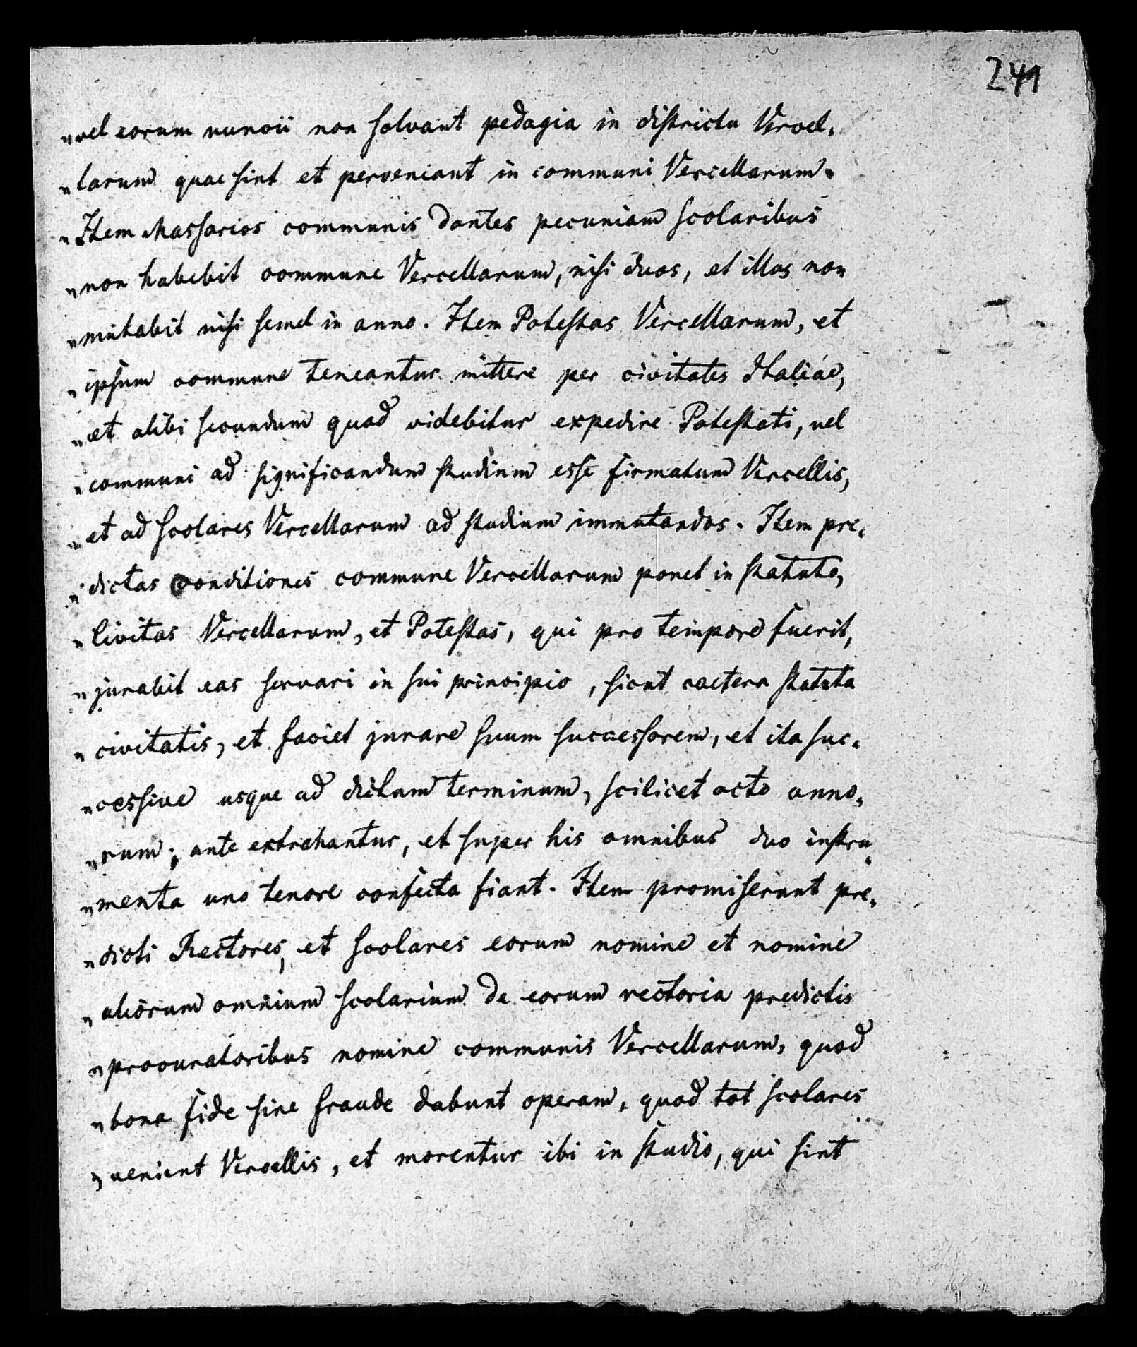 241
„vel eorum nuncii non solvant pedagia in districtu Vercel„
„larum quae sint et perveniant in communi Vercellarum.
„Item Massarios communis dantes pecuniam scolaribus
„non habebit commune Vercellarum, nisi duos, et illos non
„mutabit nisi semel in anno. Item Potestas Vercellarum, et
„ipsum commune teneantur mittere per civitates Italiae,
„et alibi secundum quod videbitur expedire Potestati, vel
„communi ad significandum studium esse firmatum Vercellis,
„et ad scolares Vercellarum ad studium immutandos. Item pre„
„dictas conditiones commune Vercellarum ponet in statuto,
„Civitas Vercellarum, et Potestas, qui pro tempore fuerit,
„jurabit eas servari in sui principio, sicut caetera statuta
„civitatis, et faciet jurare suum successorem, et ita suc„
„cessive usque ad dictum terminum, scilicet octo anno„
„rum; ante extrahantur, et super his omnibus duo instru„
„menta uno tenore confecta fiant. Item promiserunt pre„
„dicti Rectores, et scolares eorum nomine et nomine
„aliorum omnium scolarium de eorum rectoria predictis
„procuratoribus nomine communis Vercellarum, quod
„bona fide sine fraude dabunt operam, quod tot scolares
„venient Vercellis, et morentur ibi in studio, qui sint